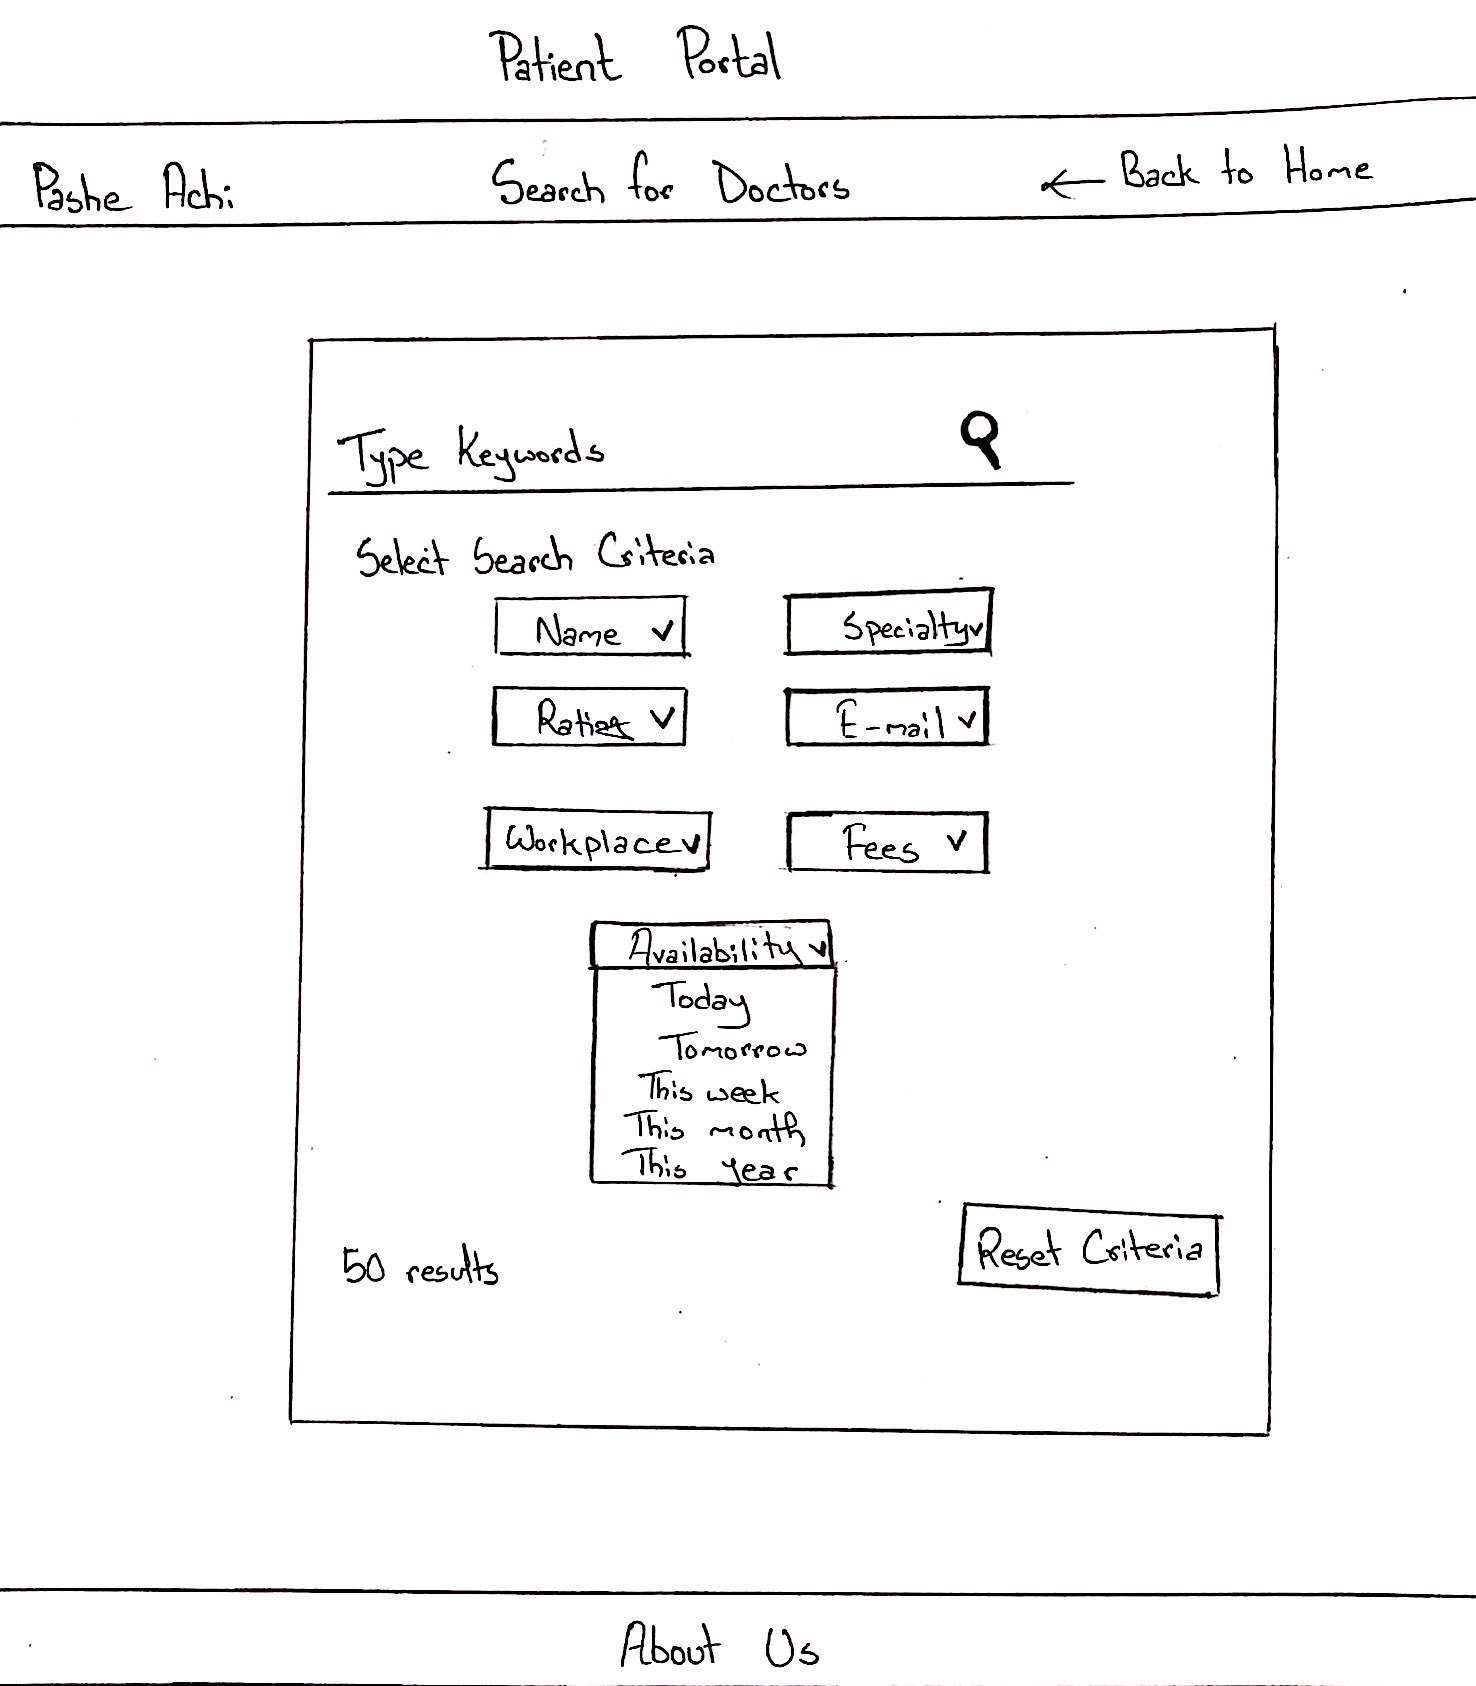 Patient Portal
Pashe Achi Search for Doctors ← Back to Home
Type Keywords
Select Search Criteria
Name Specialty
Rating E-mail
Workplace Fees
Availability
Today
Tomorrow
This week
This month
This year
50 results Reset Criteria
About Us